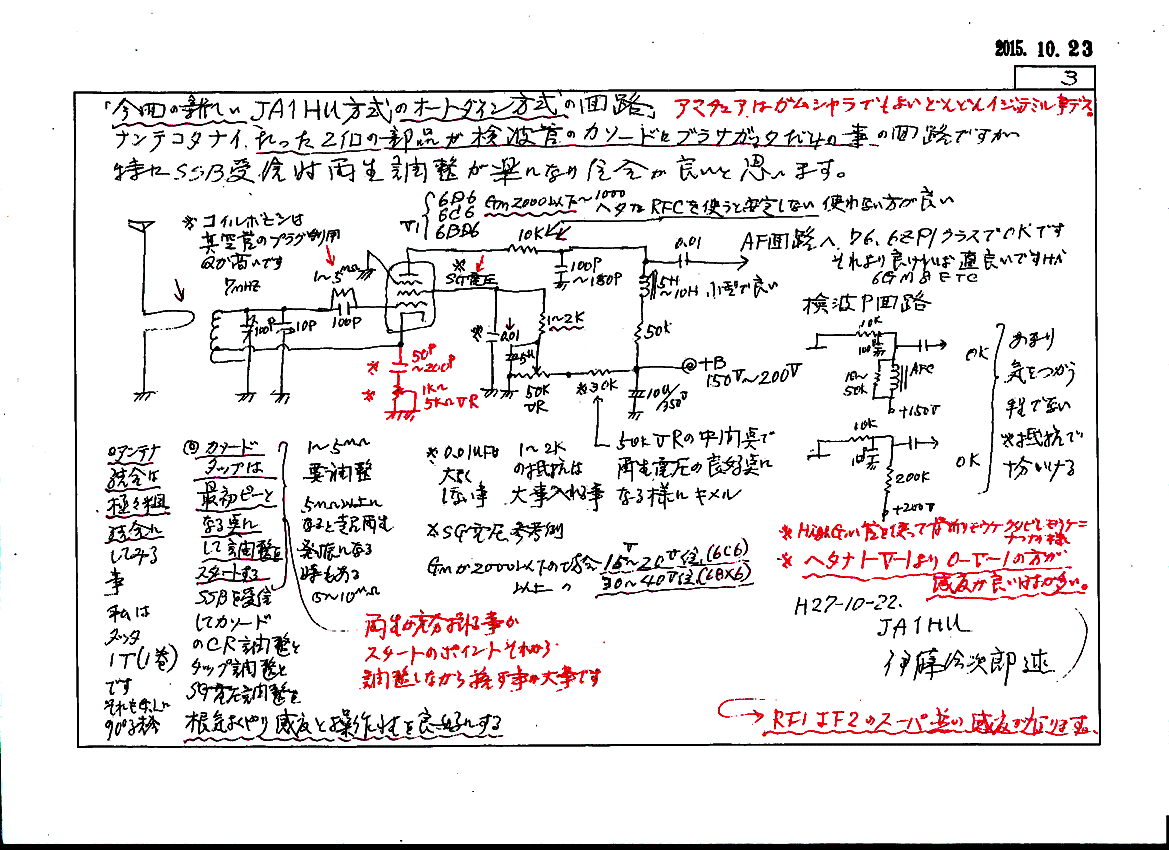 2015.10.23
3
「今回の新しい JA1HU方式のオートダイン方式の回路」
アマチュアはガムシャラでもよいどんどんイジッテミル事デス。
ナンテコタナイ、たった2個の部品が検波管のカソードにブラサガッタだけの事の回路ですが
特にSSB受信時再生調整が楽になり具合が良いと思います。
※コイルボビンは
真空管のプラグ利用
Qが高いです
7MHz
V1
6D6
6C6
6BD6
Gm2000以下〜1000
ヘタなRFCを使うと安定しない 使わない方が良い
10K
1〜5MΩ
100P
10P
100P
※SG電圧
100P
〜150P
0.01
AF回路へ、76、6ZP1クラスでOKです
それより良ければ尚良いですが
6GM8 ETC
5H
〜10H 小型で良い
※0.01
1〜2K
50K
50K
VR
※30K
10μ/
350V
+B
150V〜200V
※50P
〜200P
※1K〜
5KΩVR
検波P回路
10K
100P
10〜
50K
AFC
+150V
OK
10K
200K
+200V
OK
あまり
気をつかう
※抵抗で
十分いける
◎アンテナ
結合は
してみる
事
私は
1T(1巻)
です
◎カソード
タップは
最初ピーと
なる点に
して調整を
スタートする
SSBを受信
してカソード
のCR調整と
タップ調整と
SG電圧調整を
根気よくやり感度と操作性を良好にする
1〜5MΩ
要調整
5MΩ以上に
なると
時もある
5〜10MΩ
※0.01μFは
大きく
しない事
1〜2K
の抵抗は
大事入れる事
50KVRの中間点で
再生電圧の良好点に
なる様にキメル
※SG電圧参考例
Gmが2000以下の場合 15V〜20V位(6C6)
以上の 〃 30〜40V位(6BX6)
再生が充分起る事が
スタートのポイントそれから
調整しながら探す事が大事です
※ヘタナ1-V-1より0-V-1の方が
感度が良い
H27-10-22.
JA1HU
RF1 IF2のスーパー並の感度が